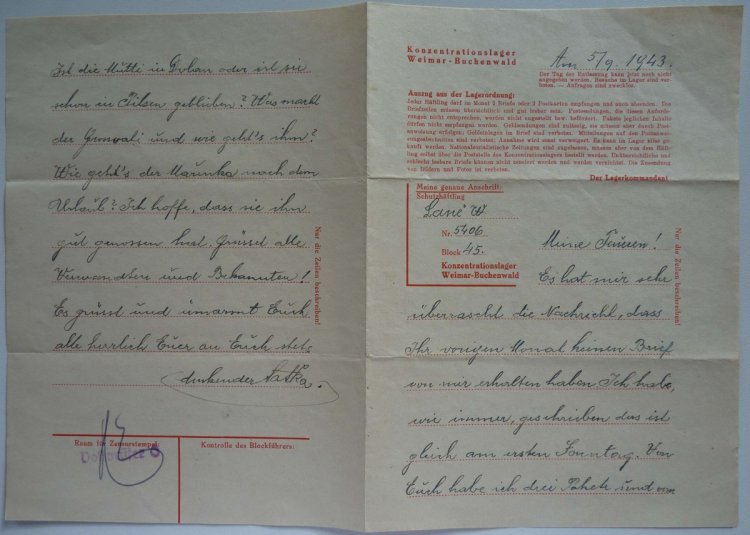 Ist die Mutti in Dohan oder ist sie
schon in Pilsen geblieben? Was macht
der und wie geht's ihm?
Wie geht's der Mařenka nach dem
Urlaub? Ich hoffe, dass sie ihn
gut genossen hat. Grüsset alle
Verwandten und Bekannten!
Es grüsst und umarmt Euch
alle herzlich Euer an Euch stet-
denkender Taťka.
Nur die Zeilen beschreiben!
Raum für Zensurstempel:
Kontrolle des Blockführers:
Konzentrationslager
Weimar-Buchenwald
Am 5/9. 1943.
Der Tag der Entlassung kann jetzt noch nicht
angegeben werden. Besuche im Lager sind ver-
boten. — Anfragen sind zwecklos.
Auszug aus der Lagerordnung:
Jeder Häftling darf im Monat 2 Briefe oder 2 Postkarten empfangen und auch absenden. Die
Briefzeilen müssen übersichtlich und gut lesbar sein. Postsendungen, die diesen Anforde-
rungen nicht entsprechen, werden nicht zugestellt bzw. befördert. Pakete jeglichen Inhalts
dürfen nicht empfangen werden. Geldsendungen sind zulässig, sie müssen aber durch Post-
anweisung erfolgen; Geldeinlagen im Brief sind verboten. Mitteilungen auf den Postanwei-
sungsabschnitten sind verboten; Annahme wird sonst verweigert. Es kann im Lager alles ge-
kauft werden. Nationalsozialistische Zeitungen sind zugelassen, müssen aber von dem Häft-
ling selbst über die Poststelle des Konzentrationslagers bestellt werden. Unübersichtliche und
schlecht lesbare Briefe können nicht zensiert werden und werden vernichtet. Die Zusendung
von Bildern und Fotos ist verboten.
Der Lagerkommandant
Meine genaue Anschrift:
Schutzhäftling
W
Nr. 5406
Block 45.
Konzentrationslager
Weimar-Buchenwald
Nur die Zeilen beschreiben!
Meine Teueren!
Es hat mir sehr
überrascht die Nachricht, dass
Ihr vorigen Monat keinen Brief
von mir erhalten haben. Ich habe,
wie immer, geschrieben das ist
gleich am ersten Sonntag. Von
Euch habe ich drei Pakete und von